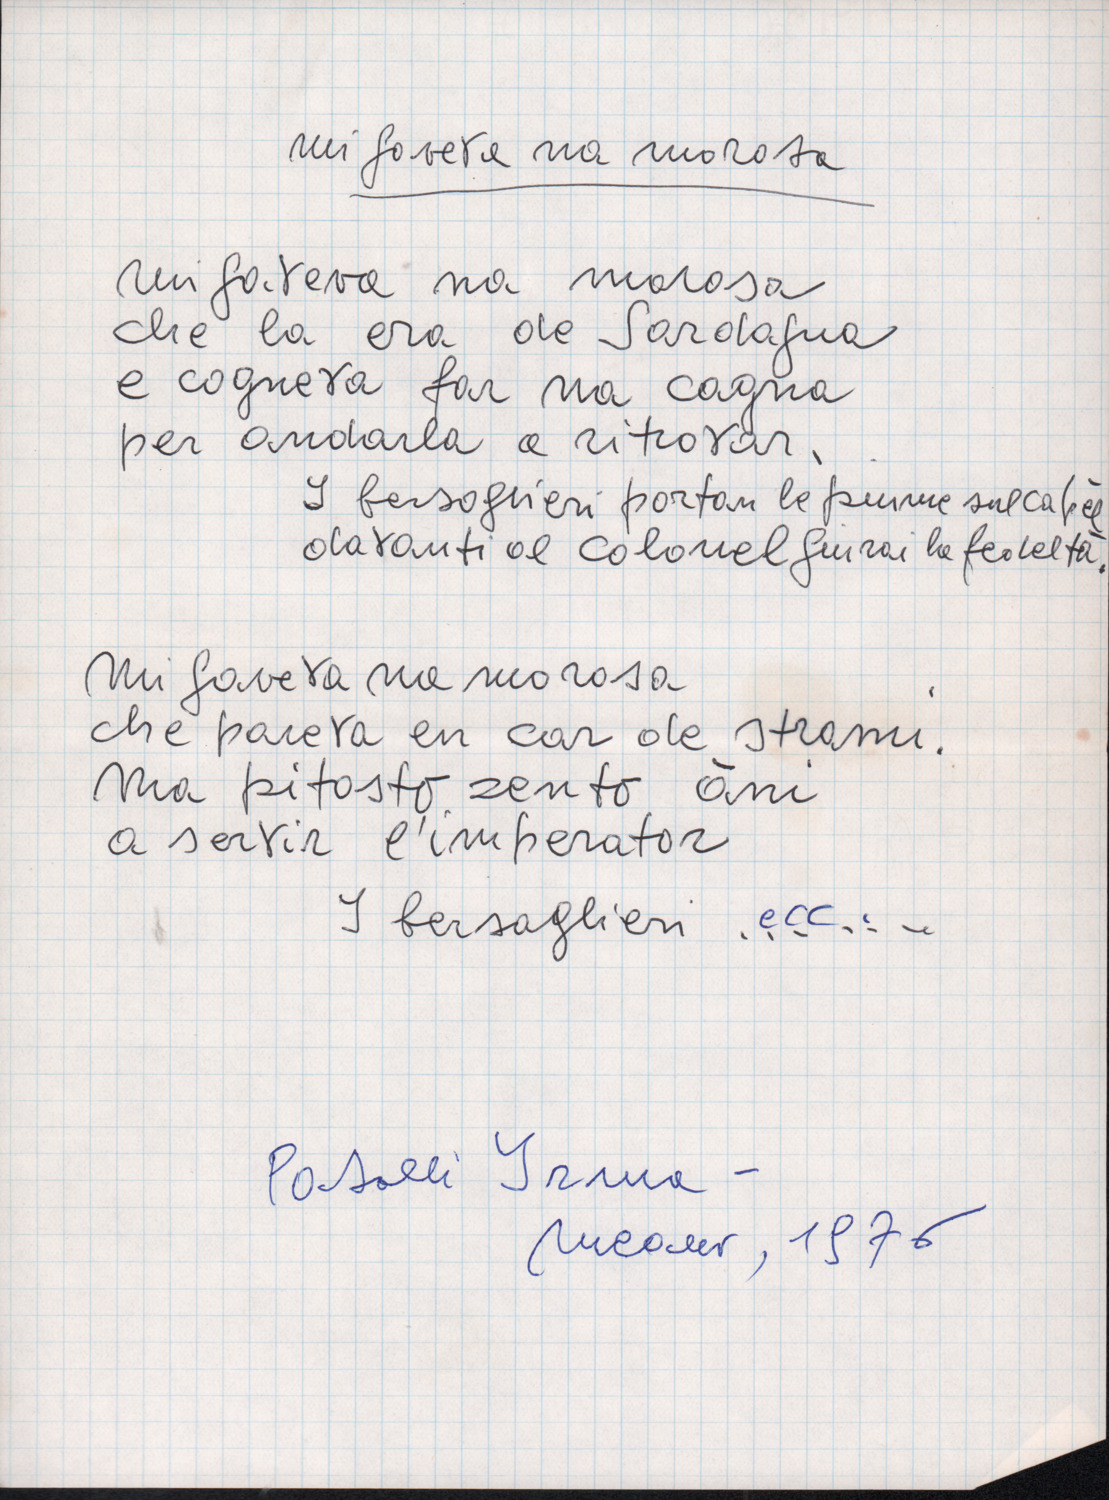 mi gaveva na morosa
Mi gaveva na morosa
che la era de Sardagna
e cogneva far na cagna
per andarla a ritrovar.
I bersaglieri portan le piume sul capèl
davanti al colonel giurai la fedeltà.
Mi gaveva na morosa
che pareva en car de strami.
Ma pitosto zento àni
a servir l'imperator
I bersaglieri ..ecc....
Irma -
, 1976